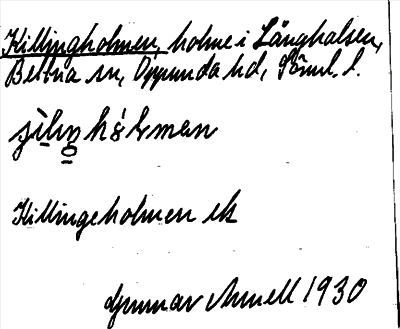 Killingholmen, holme i Långhalsen,
Bettna sn, Oppunda hd, Söml. l.
Killingeholmen ek
Gunnar Annell 1930